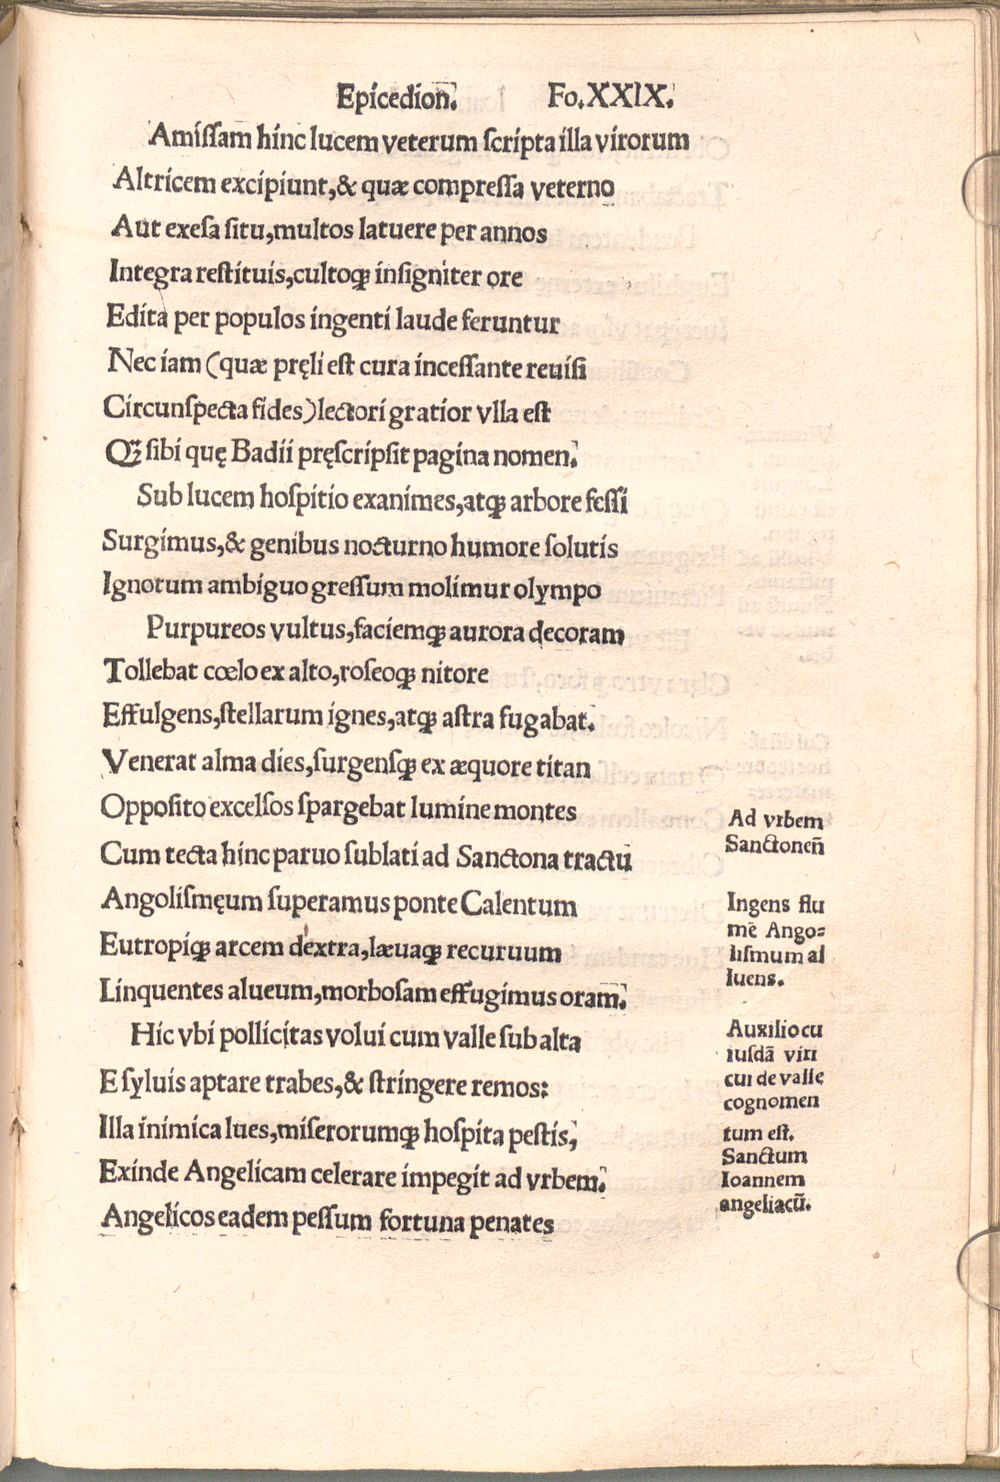 Epicedion. Fo.XXIX.
Amiſſam hinc lucem veterum ſcripta illa virorum
Altricem excipiunt,& quæ compreſſa veterno
Aut exeſa ſitu,multos latuere per annos
Integra reſtituis,cultoqꝫ inſigniter ore
Edita per populos ingenti laude feruntur
Nec iam (quæ pręli eſt cura inceſſante reuiſi
Circunſpecta fides)lectori gratior vlla eſt
Qꝫ ſibi quę Badii pręſcripſit pagina nomen.
Sub lucem hoſpitio exanimes,atqꝫ arbore feſſi
Surgimus,& genibus nocturno humore ſolutis
Ignotum ambiguo greſſum molimur olympo
Purpureos vultus,faciemqꝫ aurora decoram
Tollebat cœlo ex alto,roſeoqꝫ nitore
Effulgens,ſtellarum ignes,atqꝫ aſtra fugabat.
Venerat alma dies,ſurgenſqꝫ ex æquore titan
Oppoſito excelſos ſpargebat lumine montes
Cum tecta hinc paruo ſublati ad Sanctona tractu
Angoliſmęum ſuperamus ponte Calentum
Eutropiqꝫ arcem dextra,læuaqꝫ recuruum
Linquentes alueum,morboſam effugimus oram.
Hic vbi pollicitas volui cum valle ſub alta
E ſyluis aptare trabes,& ſtringere remos:
Illa inimica lues,miſerorumqꝫ hoſpita peſtis,
Exinde Angelicam celerare impegit ad vrbem.
Angelicos eadem peſſum fortuna penates
Ad vrbem
Sanctonen̄
Ingens flu
mē Ango=
liſmum al
luens.
Auxilio cu
iuſdā viri
cui de valle
cognomen
tum eſt.
Sanctum
Ioannem
angeliacū.